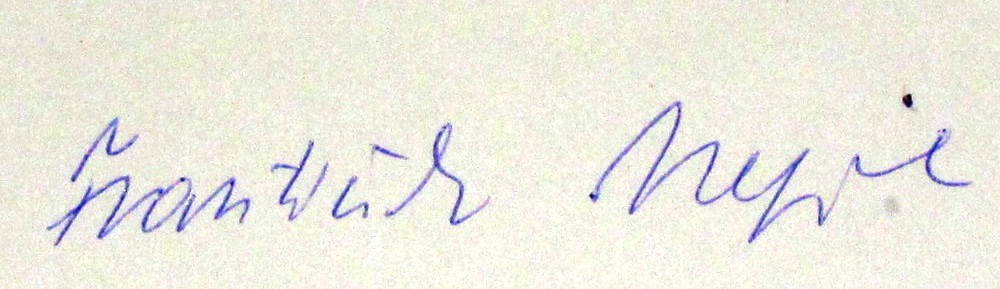 František Nepil